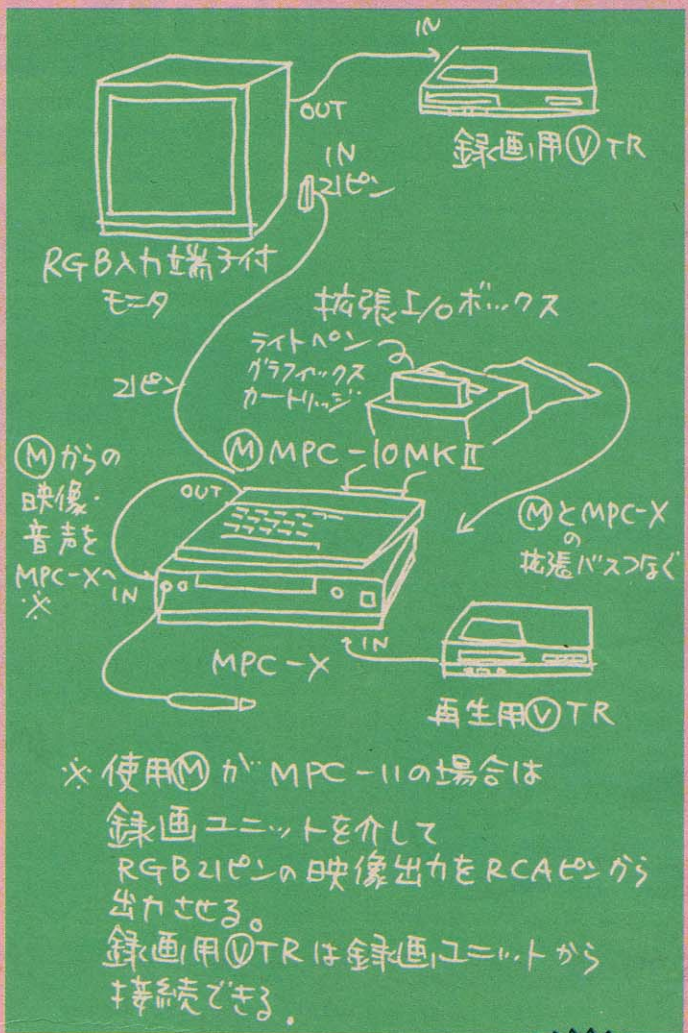 IN
OUT
録画用ⓋTR
IN
21ピン
RGB入力端子付
モニタ
拡張I/oボックス
ライトペン
グラフィックス
カートリッジ
21ピン
ⓂMPC-10MKⅡ
Ⓜからの
映像・
音声を
MPC-Xへ
※
OUT
IN
ⓂとMPC-X
の
拡張バスつなぐ
IN
MPC-X
再生用ⓋTR
※使用ⓂがMPC-11の場合は
録画ユニットを介して
RGB21ピンの映像出力をRCAピンから
出力させる。
録画用ⓋTRは録画ユニットから
接続できる.